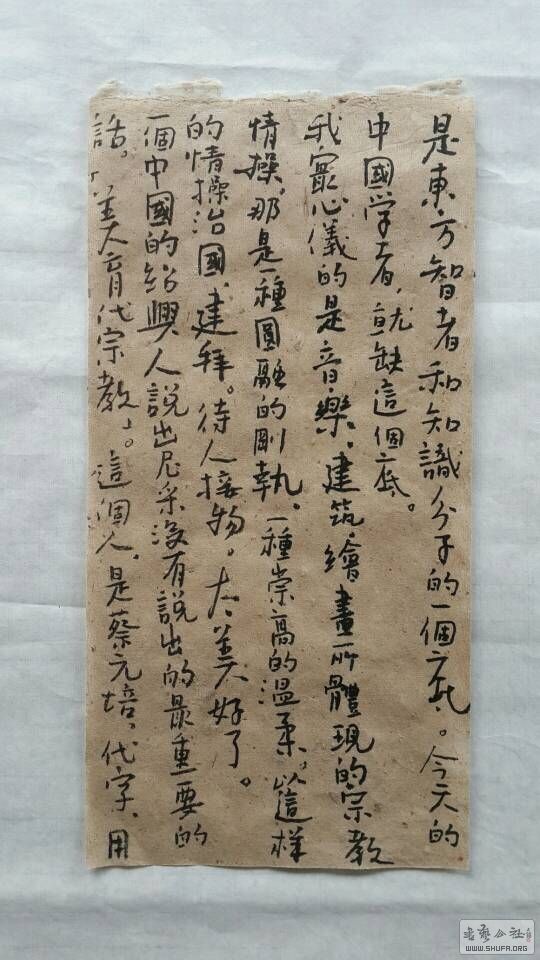 是東方智者和知識分子的一個底。今天的
中國学者，就缺這個底。
我最心儀的是音樂、建筑、繪畫所體現的宗教
情操，那是一種圓融的剛執，一種崇高的温柔。以這樣
的情操治國、建拜。待人接物。太美好了。
一個中國的紹興人說出尼采没有說出的最重要的
話。「美育代宗教」。這個人，是蔡元培。代字、用
書藝公社
WWW.SHUFA.ORG